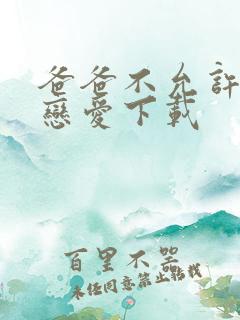 爸爸不允許
戀愛下載
百里不哭
未经同意禁止轉載